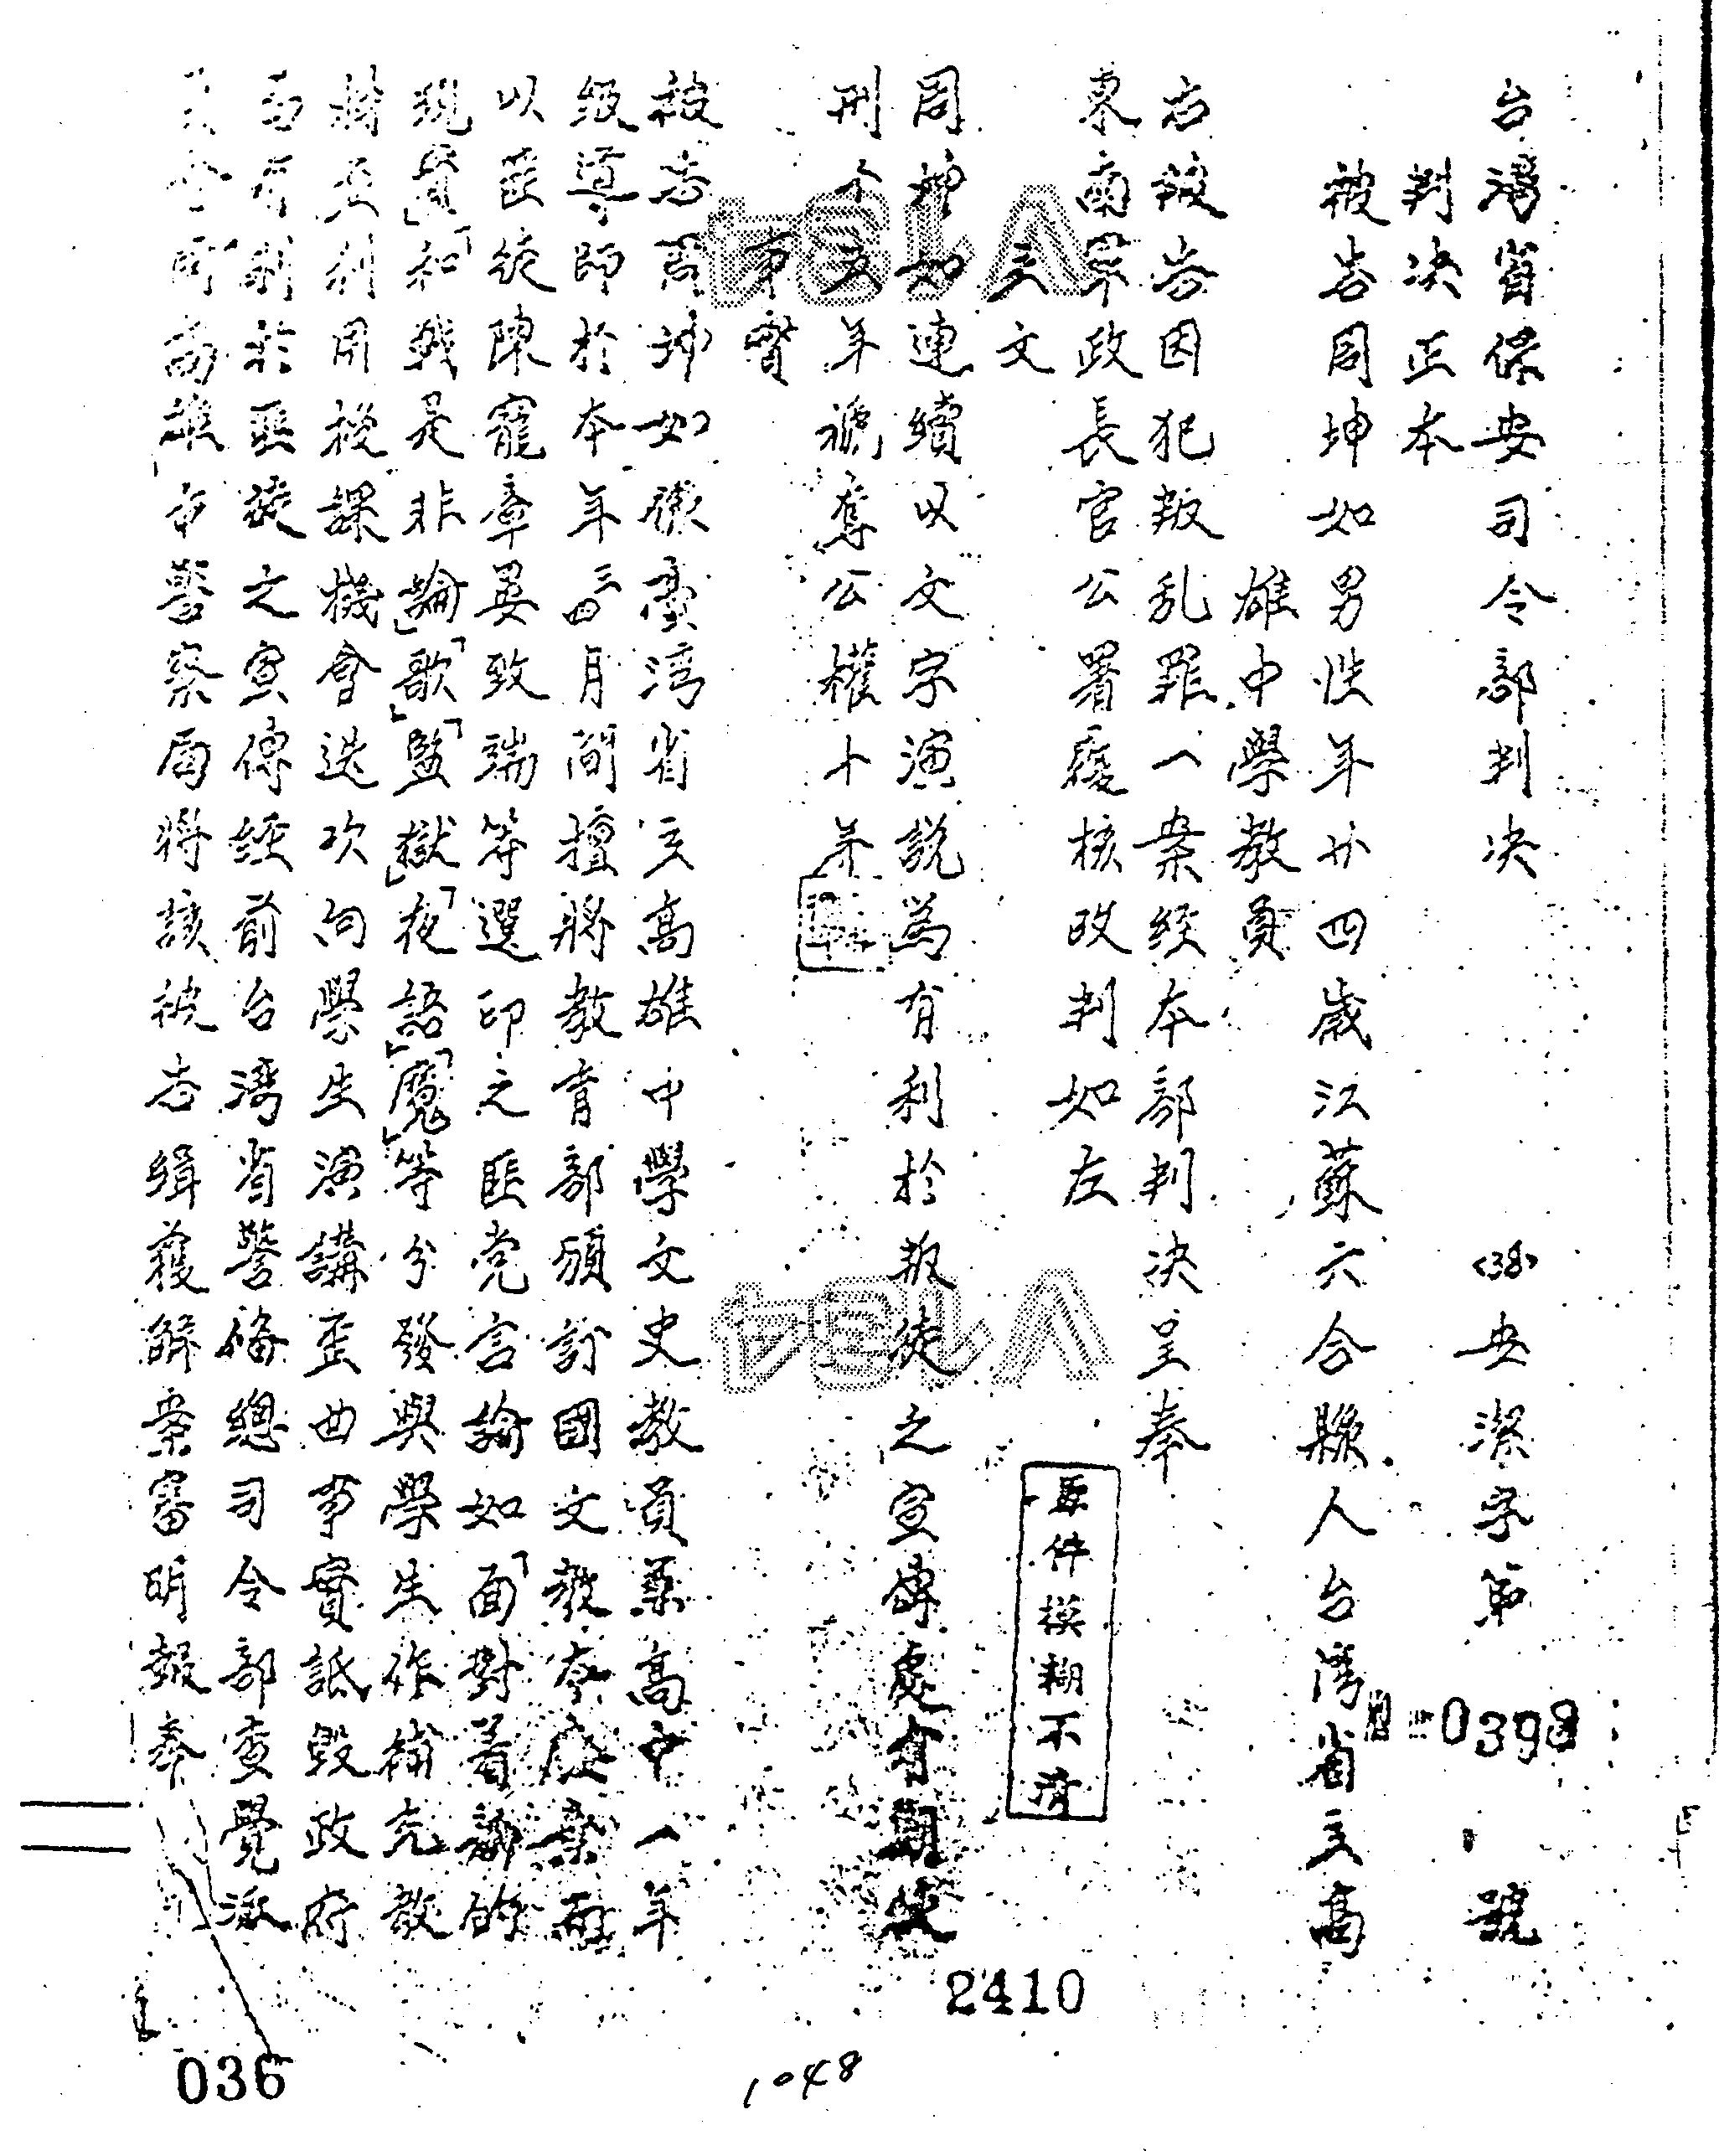 台灣省保安司令部判決 (38)安潔字第 0398 號
判決正本
被告周坤如男性年廿四歲江蘇六合縣人台灣省立高
雄中學教員
右被告因犯叛乱罪一案経本部判決呈奉
東南軍政長官公署覆核改判如左
主文
周坤如連續以文字演説為有利於叛徒之宣傳處有期徒
刑十五年褫奪公權十年
事實
被告周坤如係臺灣省立高雄中學文史教員兼高中一年
級導師於本年三四月間擅將教育部頒訂國文教本廢棄而
以匪徒陳寵章晏致端等選印之匪党言論如「面對着新的
現實」「和戰是非論」「歌」「監獄」「夜語」「魔」等分發與學生作補充教
材並利用授課機會迭次向學生演講歪曲事實詆毀政府
而有利於匪徒之宣傳経前台灣省警備總司令部查覺派
令高雄市警察局將該被告緝獲解案審明報奉
原件模糊不清
2410
1048
036